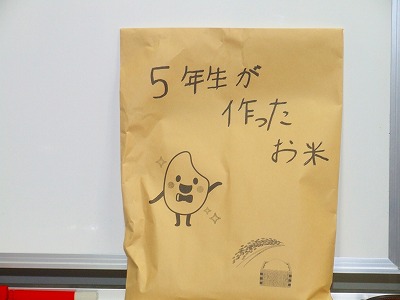 5年生が
作った
お米